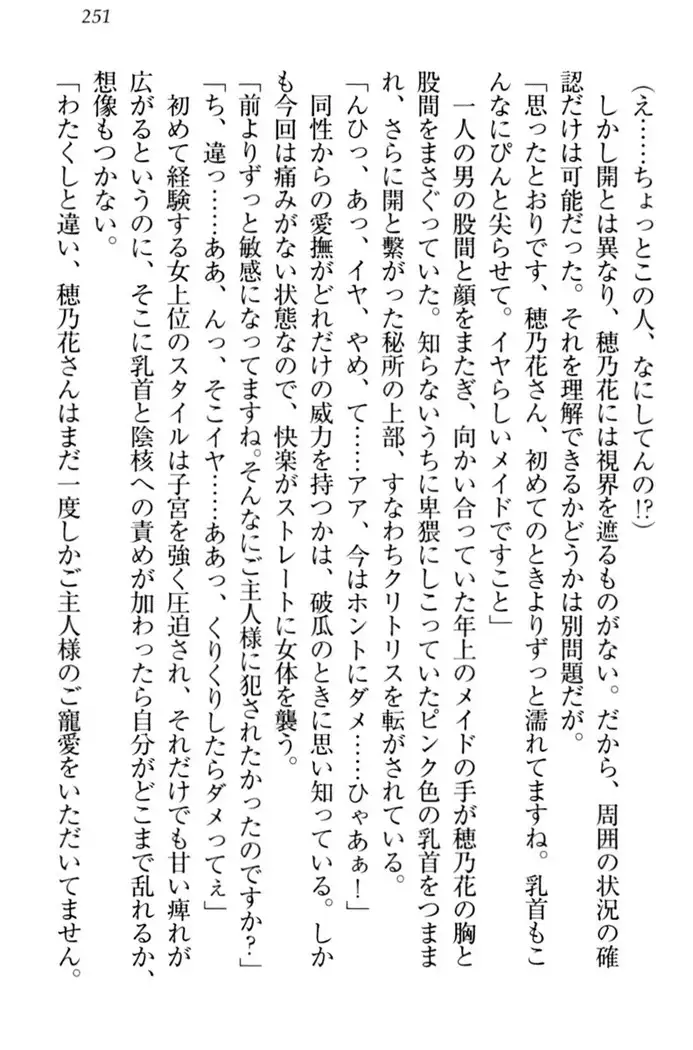 251
(え……ちょっとこの人、なにしてんの!?)
しかし開とは異なり、穂乃花には視界を遮るものがない。だから、周囲の状況の確
認だけは可能だった。それを理解できるかどうかは別問題だが。
「思ったとおりです、穂乃花さん、初めてのときよりずっと濡れてますね。乳首もこ
んなにぴんと尖らせて。イヤらしいメイドですこと」
一人の男の股間と顔をまたぎ、向かい合っていた年上のメイドの手が穂乃花の胸と
股間をまさぐっていた。知らないうちに卑猥にしこっていたピンク色の乳首をつまま
れ、さらに開と繋がった秘所の上部、すなわちクリトリスを転がされている。
「んひっ、あっ、イヤ、やめ、て……アア、今はホントにダメ……ひゃあぁ!」
同性からの愛撫がどれだけの威力を持つかは、破瓜のときに思い知っている。しか
も今回は痛みがない状態なので、快楽がストレートに女体を襲う。
「前よりずっと敏感になってますね。そんなにご主人様に犯されたかったのですか?」
「ち、違っ……ああ、んっ、そこイヤ……ああっ、くりくりしたらダメってぇ」
初めて経験する女上位のスタイルは子宮を強く圧迫され、それだけでも甘い痺れが
広がるというのに、そこに乳首と陰核への責めが加わったら自分がどこまで乱れるか、
想像もつかない。
「わたくしと違い、穂乃花さんはまだ一度しかご主人様のご寵愛をいただいてません。